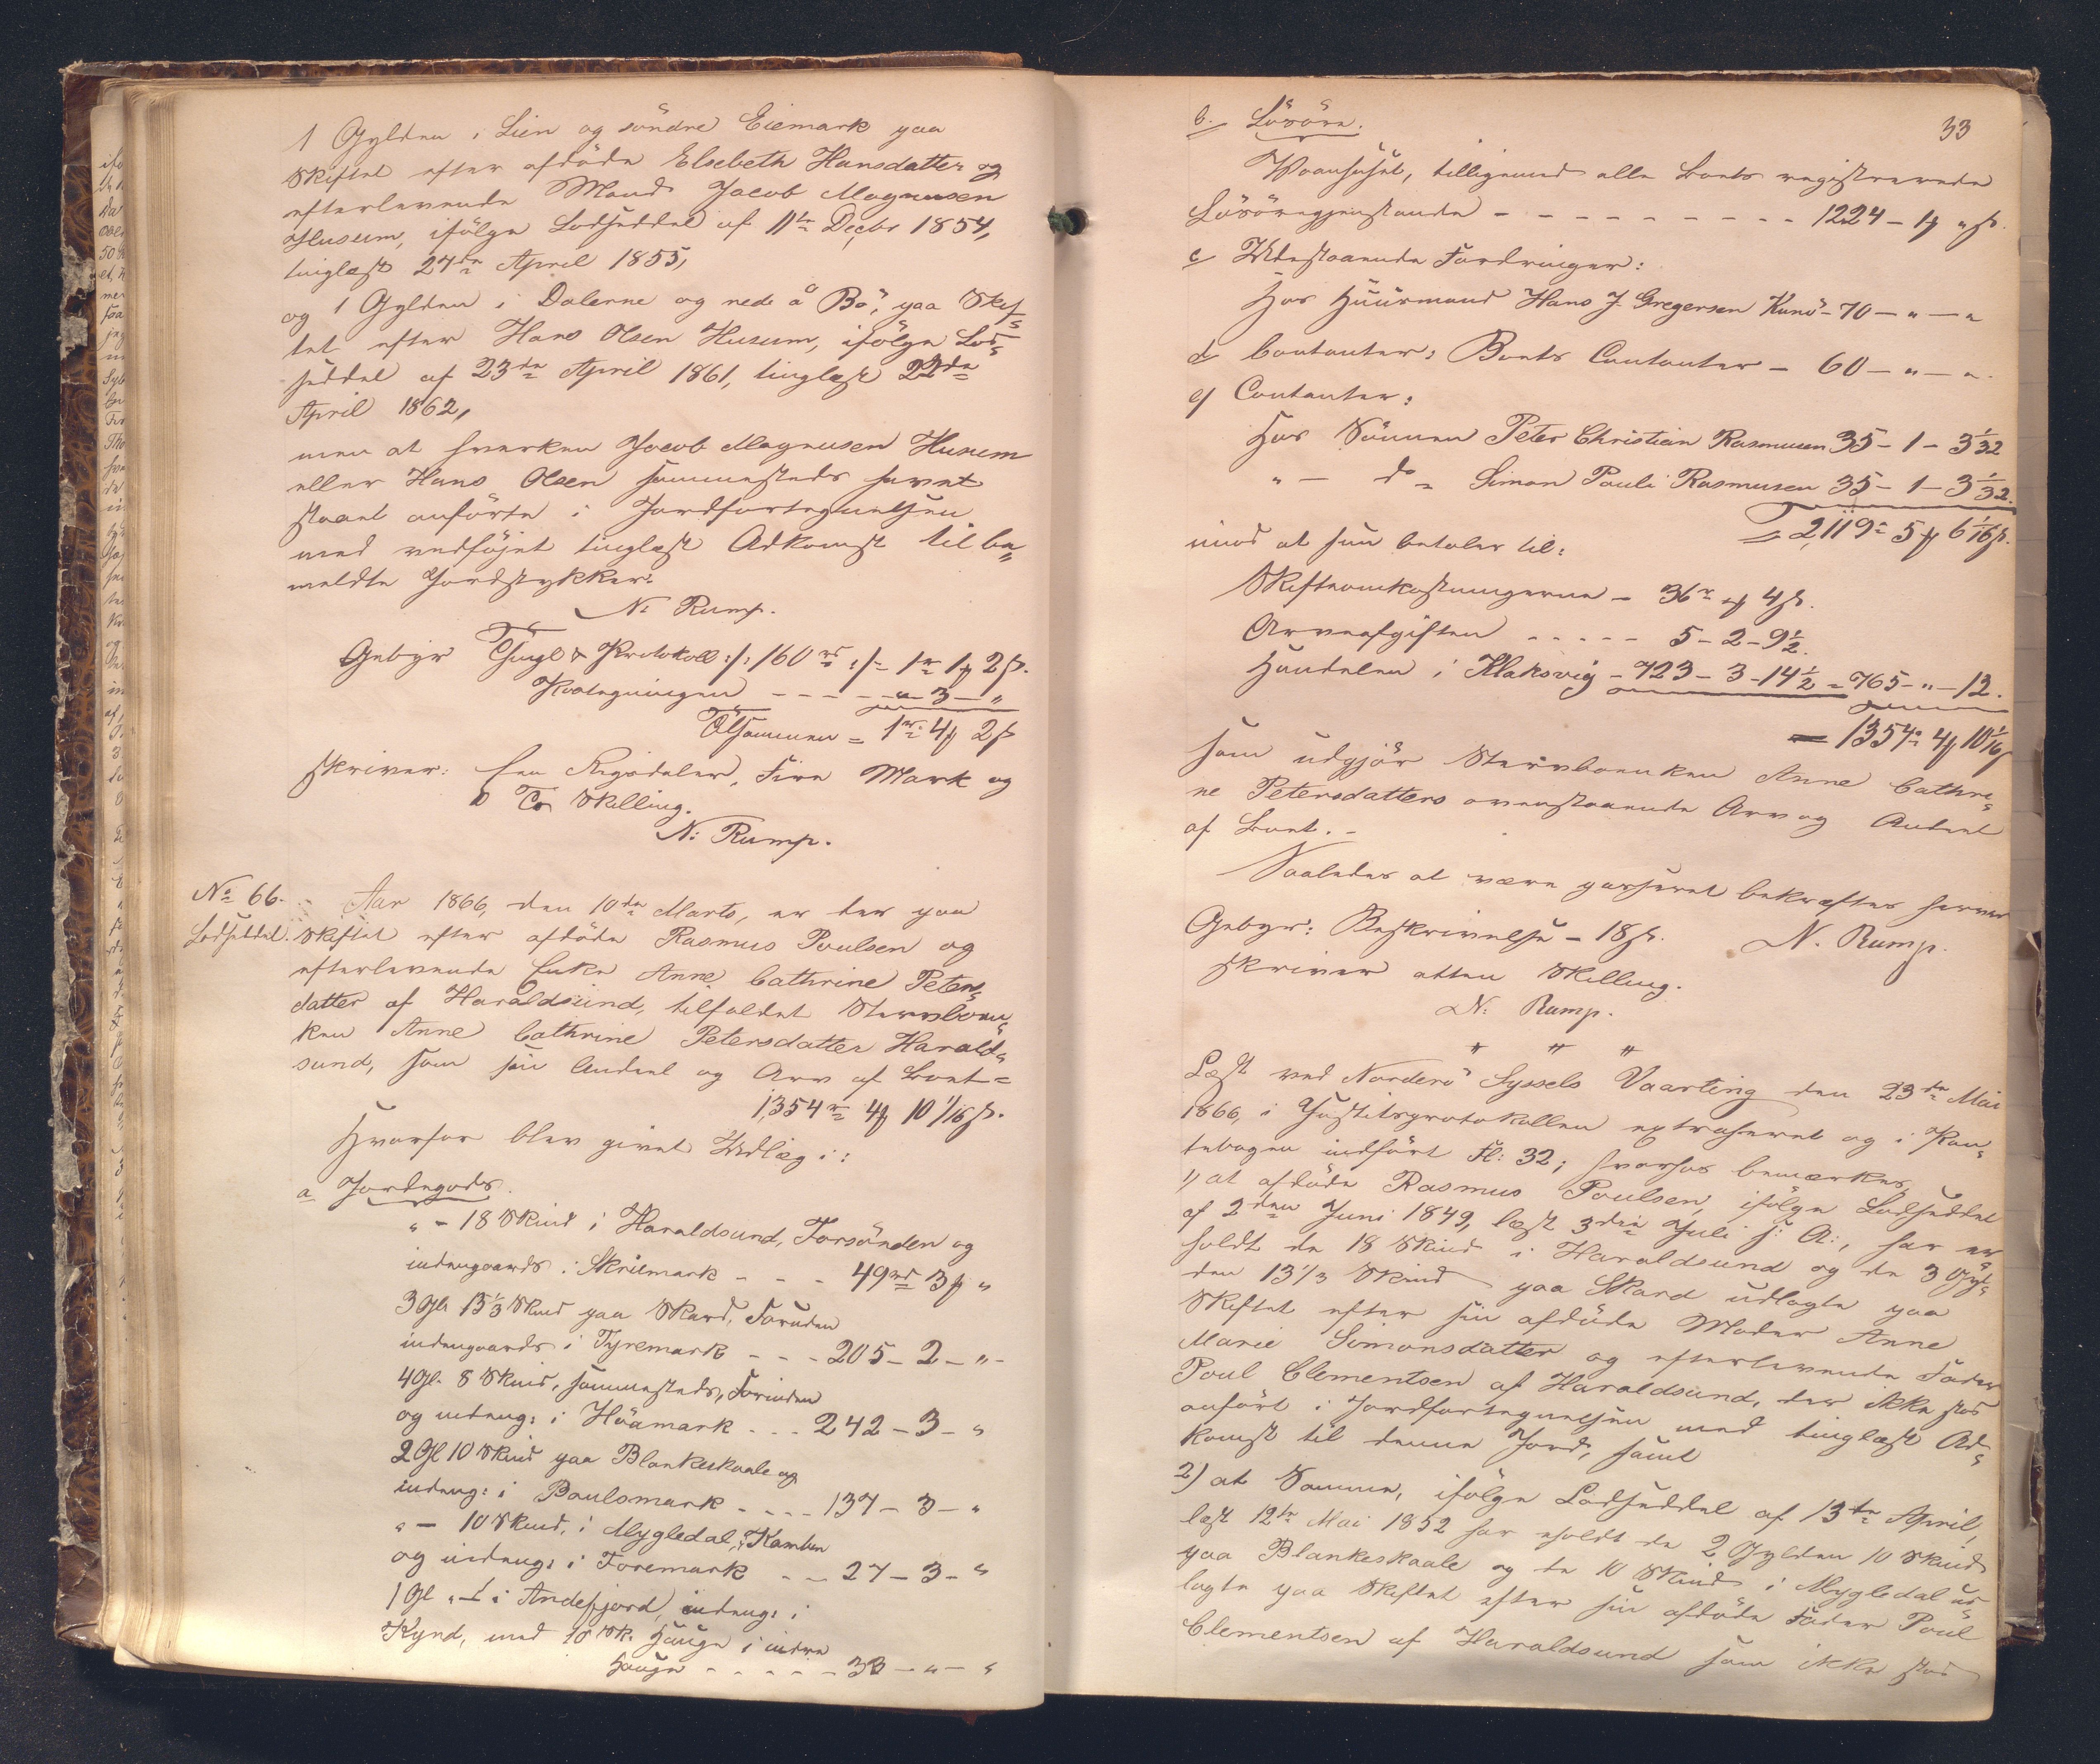 1 Gylden i Lien og söndre Eiemark paa
Skiftet efter afdöde Elsebeth Hansdatter og
efterlevende Mand Jacob Magnusen
Husum, ifölge Lodseddel af 11te Decbr 1854,
tinglæst 27de April 1855,
og 1 Gylden i Dalerne og nede å Bö, paa Skif-
tet efter Hans Olsen Husum, ifölge Lod-
seddel af 23de April 1861, tinglæst 22de
April 1862,
men at hverken Jacob Magnusen Husum
eller Hans Olsen sammesteds havet
staaet anförte i Jordfortegnelsen
med vedföjet tinglæst Adkomst til be-
meldte Jordstykker.
N. Rump.
Gebyr Thingl & Protokoll :/: 160 rd :/: 1 rd 1 ꝑ 2 s.
Paategningen - - - - " 3 - "
Tilsammen = 1 rd 4 ꝑ 2 s
skriver: Een Rigsdaler, Fire Mark og
To Skilling.
N: Rump.
No 66. Aar 1866, den 10de Marts, er der paa
Lodseddel. Skiftet efter afdöde Rasmus Poulsen og
efterlevende Enke Anne Cathrine Peters-
datter af Haraldsund, tilfaldet Stervboen-
ken Anne Cathrine Petersdatter Harald-
sund, som sin Andeel og Arv af Boet =
1354 rd 4 ꝑ 10 1/16 s.
Hvorfor blev givet Udlæg i:
a Jordegods.
" - 18 Skind i Haraldsund, Forsönden og
indengaards i Skrilmark - - - 49 rd 3 ꝑ "
3 Gl. 13 1/3 Skind paa Skard, Foruden
indengaards i Tyremark - - - 205 - 2 - " -
4 Gl. 8 Skind, sammesteds, Forinden
og indeng: i Höamark - - - 242 - 3 - "
2 Gl 10 Skind paa Blankeskaale og
indeng: i Poulsmark - - - - 137 - 3 - "
" - 10 Skind, i Mygledal, Kamben
og indeng: i Foremark - - - 27 - 3 - "
1 Gl " - i Andefjord, indeng: i
Kynd, med 10 Sk. Hauge i indre
Hauge - - - - - 33 - " - "
33
b. Lösöre.
Vaanhuset, tilligemed alle Boets registrerede
Lösöregjenstande - - - - - - - - - 1224 - 1 ꝑ " s.
c Udestaaende Fordringer:
Hos Huusmand Hans J. Gregersen Kunö - 70 - " - "
d Contanter: Boets Contanter - 60 - " - "
e) Contanter:
Hos Sönnen Peter Christian Rasmusen 35 - 1 - 3 1/32
" - do = Simon Pauli Rasmusen 35 - 1 - 3 1/32.
= 2,119 - 5 ꝑ 6 1/16 s.
imod at hun betaler til:
Skifteomkostningerne - 36 rd " ꝑ 4 s.
Arveafgiften - - - - - 5 - 2 - 9 1/2.
Handelen i Klaksvig - 723 - 3 - 14 1/2 = 765 - " - 12.
= 1354 rd 4 ꝑ 10 1/16 s
som udgjör Stervboenken Anne Cathri-
ne Petersdatters ovenstaaende Arv og Andeel
af Boet. -
Saaledes at være passeret bekræftes herved
Gebyr: Beskrivelse - 18 s. N. Rump.
skriver atten Skilling.
N: Rump.
" " "
Læst ved Norderö Syssels Vaarting den 23de Mai
1866, i Justitsprotokollen extraheret og i Pan-
tebogen indfört Fl: 32; hvorhos bemærkes
1) at afdöde Rasmus Poulsen, ifölge Lodseddel
af 2den Juni 1849, læst 3die Juli s: A:, har er-
holdt de 18 Skind i Haraldsund og de 3 Gyl-
den 13 1/3 Skind paa Skard udlagte paa
Skiftet efter sin afdöde Moder Anne
Marie Simonsdatter og efterlevende Fader
Poul Clementsen af Haraldsund, der ikke stod
anfört i Jordfortegnelsen med tinglæst Ad-
komst til denne Jord, samt
2) at Samme, ifölge Lodseddel af 13de April,
læst 12te Mai 1852 har erholdt de 2 Gylden 10 Skind
paa Blankeskaale og de 10 Skind i Mygledal ud-
lagte paa Skiftet efter sin afdöde Fader Poul
Clementsen af Haraldsund som ikke stod